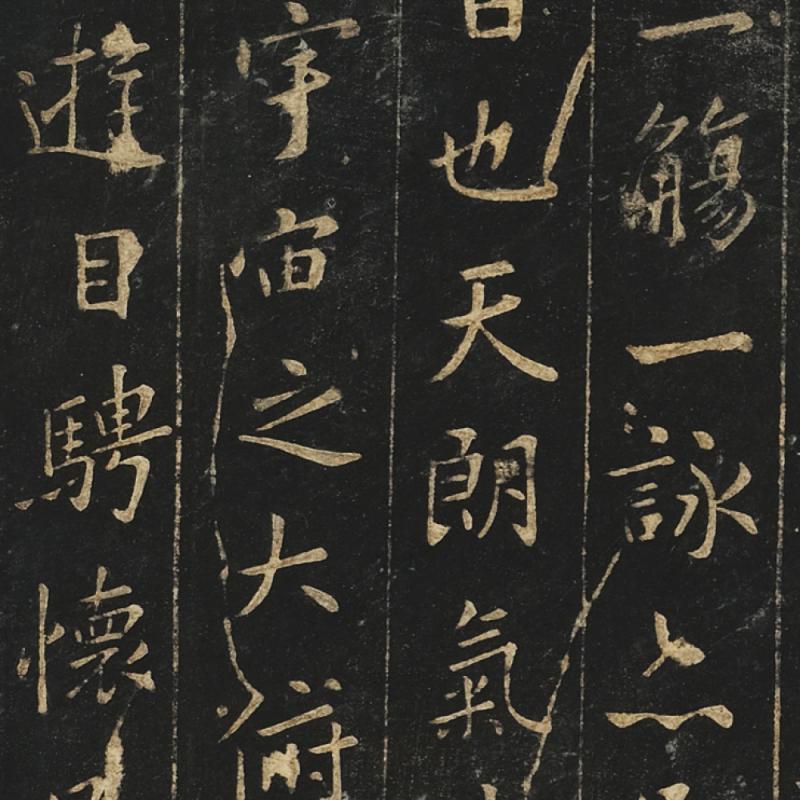 一觴一詠亦
日也天朗氣
宇宙之大俯
遊目騁懷